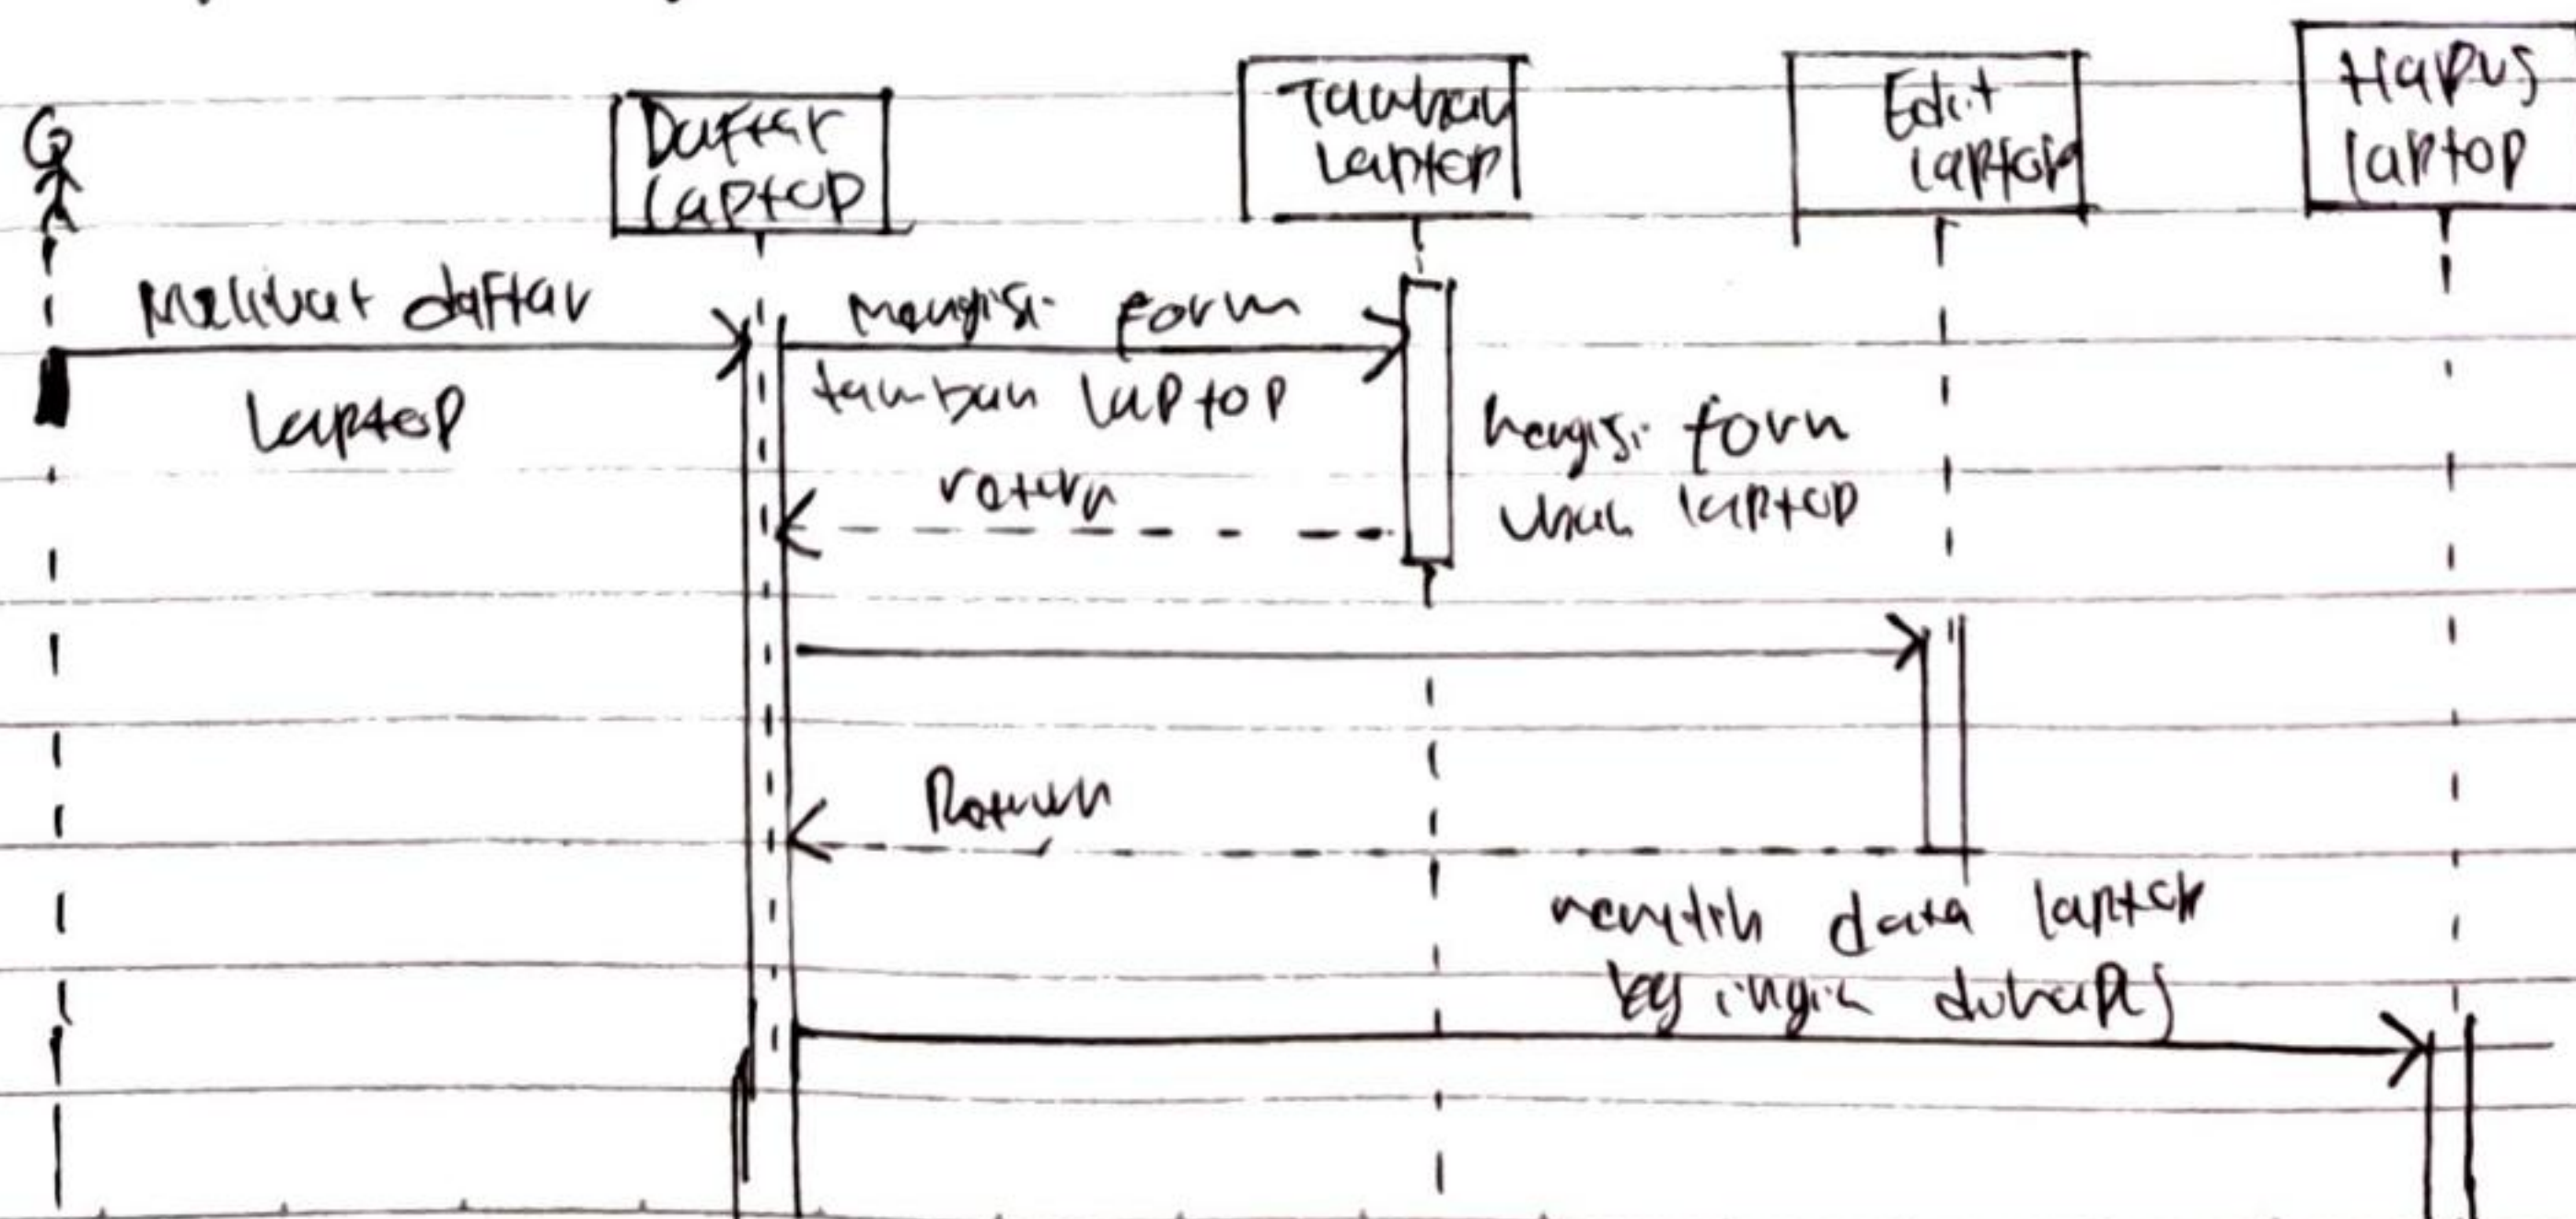 Daftar
laptop
Tambah
Laptop
Edit
laptop
Hapus
laptop
Melihat daftar
laptop
mengisi form
tambah laptop
return
mengisi form
ubah laptop
Return
memilih data laptop
yg ingin dihapus